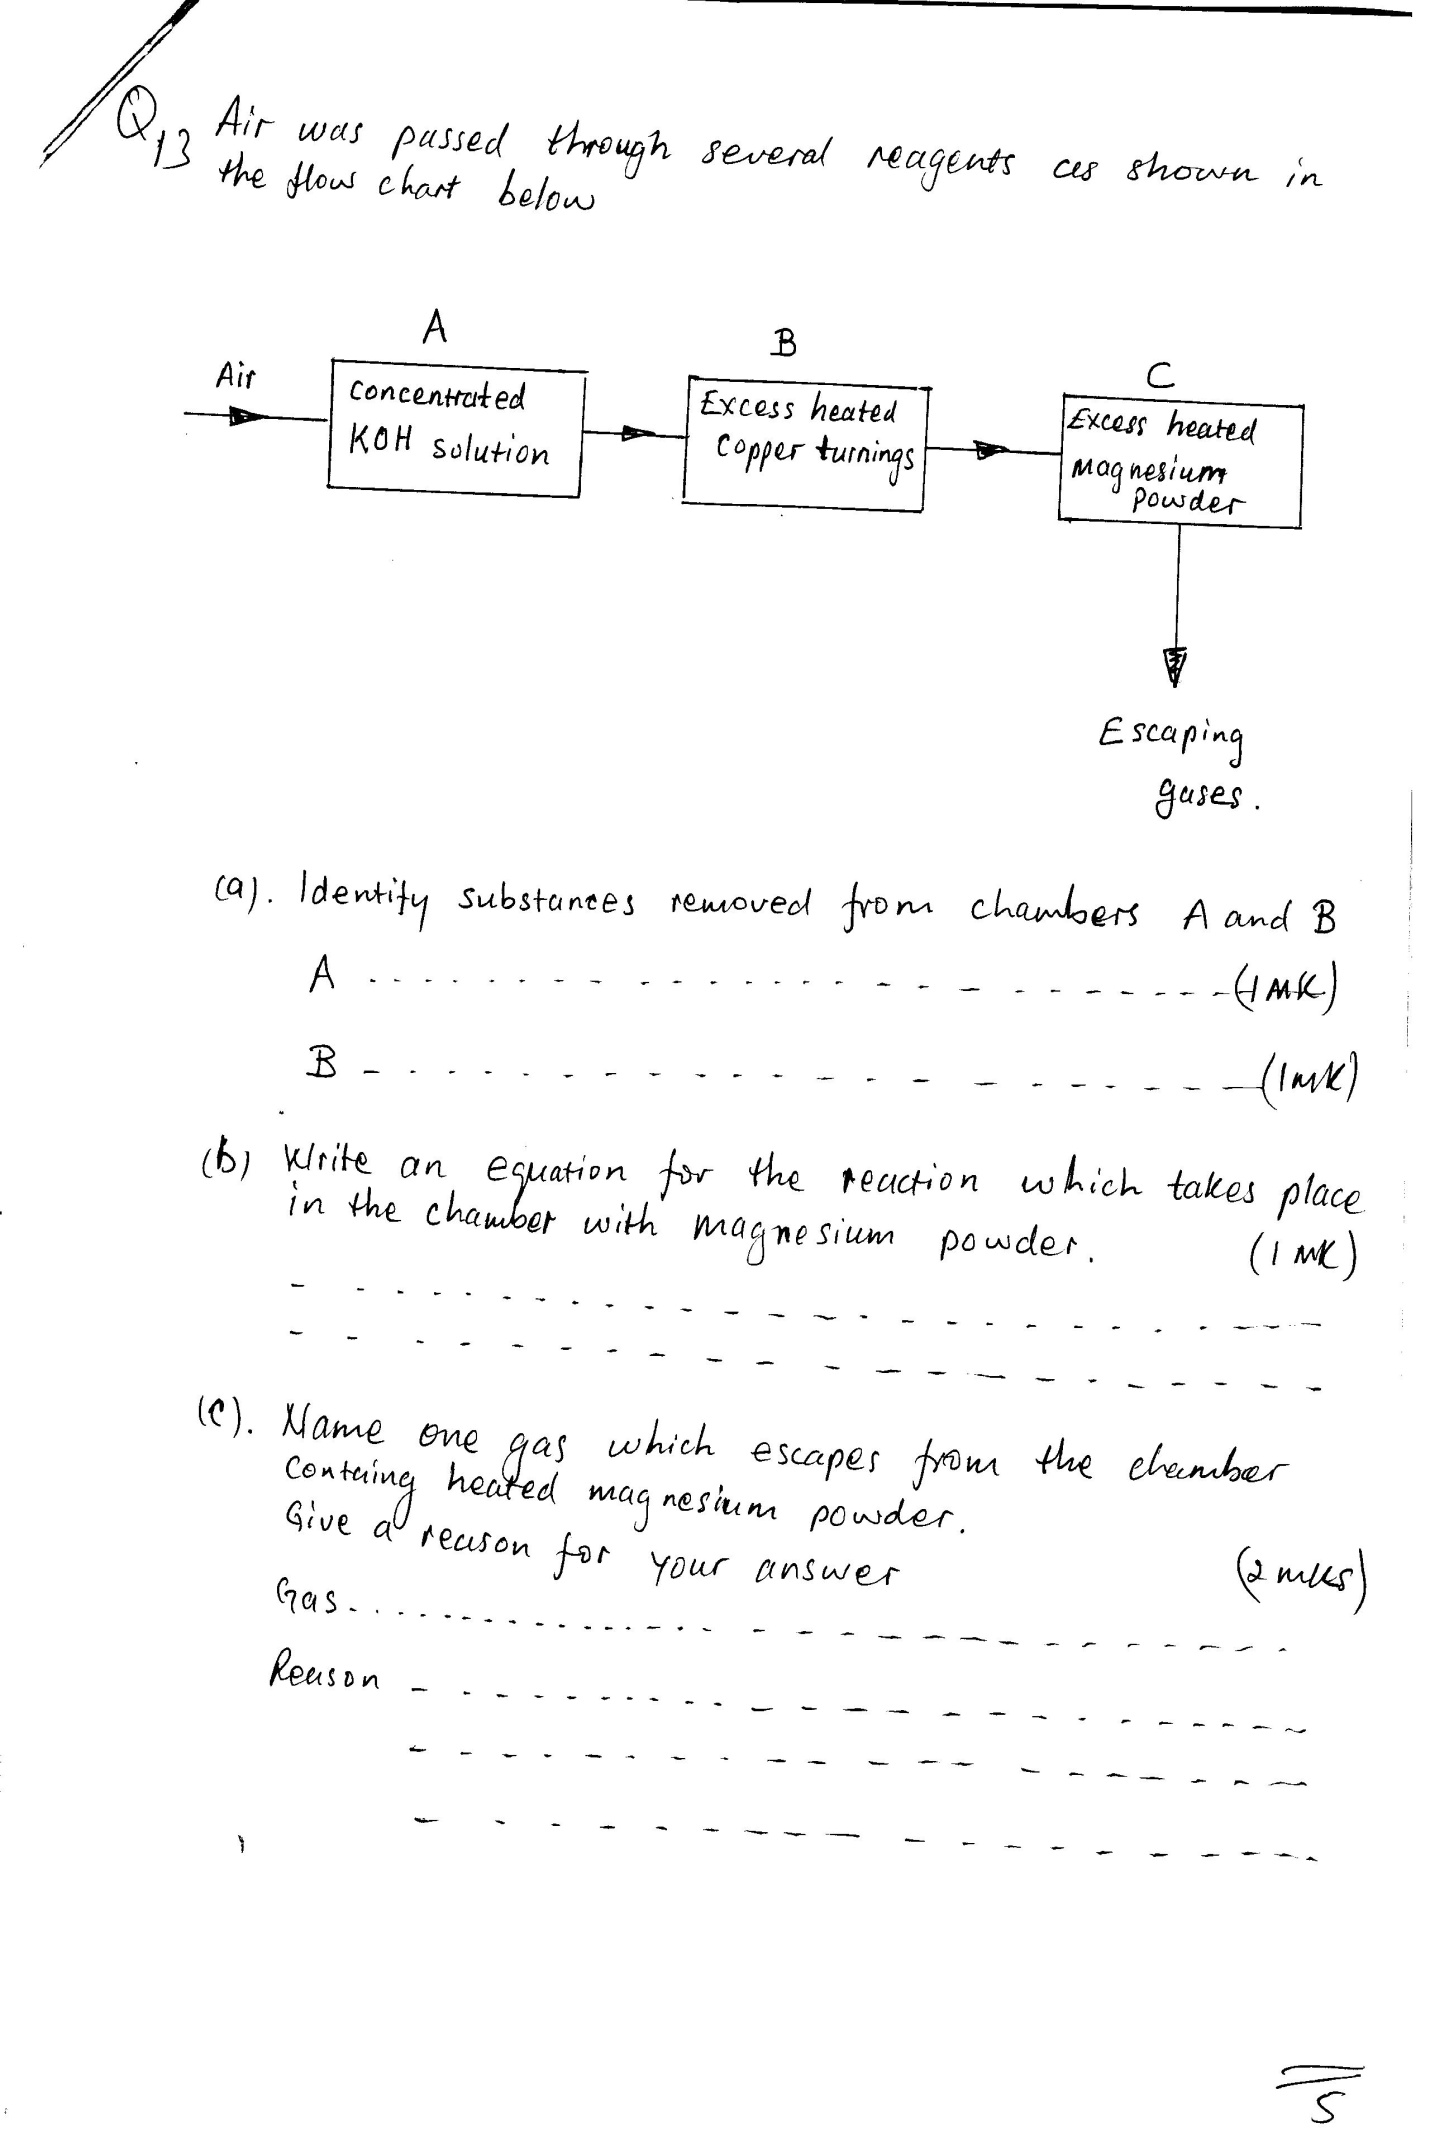 Q13 Air was passed through several reagents as shown in
the flow chart below
A
B
C
Air
Concentrated
KOH solution
Excess heated
Copper turnings
Excess heated
Magnesium
Powder
Escaping
gases.
(a). Identify substances removed from chambers A and B
A .......... (1MK)
B .......... (1mK)
(b) Write an equation for the reaction which takes place
in the chamber with magnesium powder. (1 MK)
(c). Name one gas which escapes from the chamber
Containg heated magnesium powder.
Give a reason for your answer (2 mks)
Gas ..........
Reason ..........
5